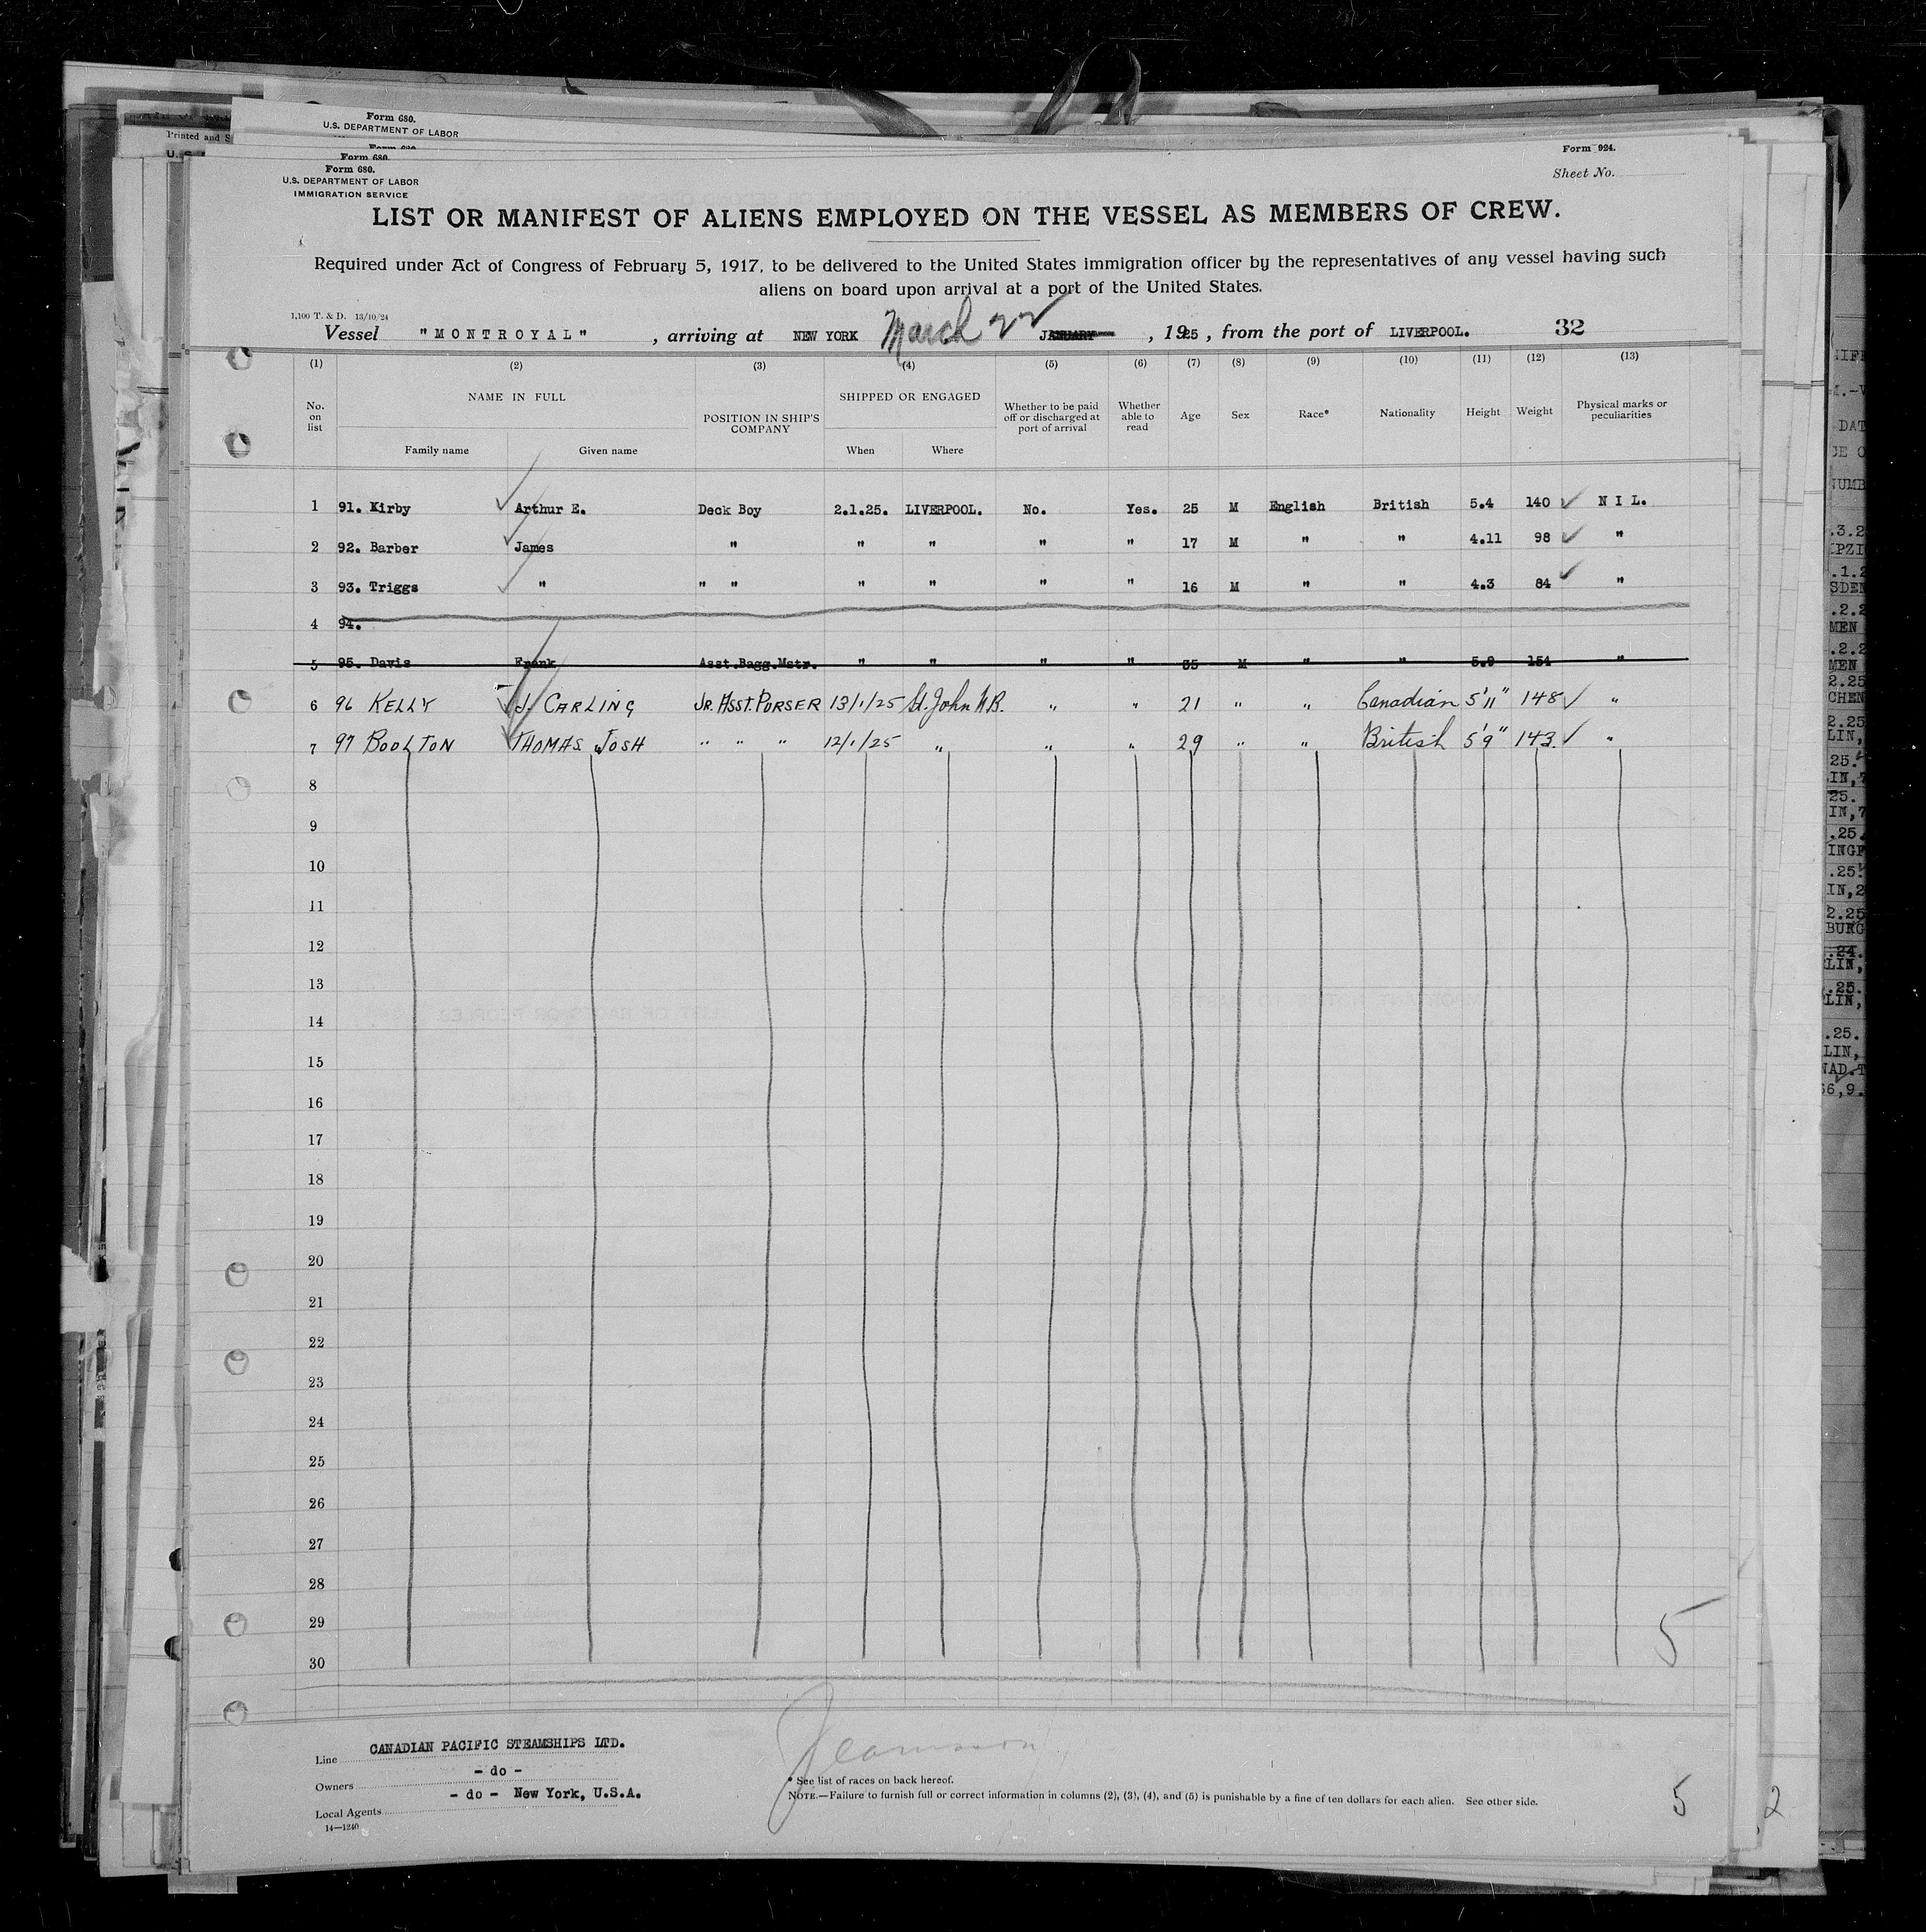 Form 680.
U.S. DEPARTMENT OF LABOR
Printed and S
Form 680.
Form 680.
U.S. DEPARTMENT OF LABOR
IMMIGRATION SERVICE
Form 924.
Sheet No.
LIST OR MANIFEST OF ALIENS EMPLOYED ON THE VESSEL AS MEMBERS OF CREW.
Required under Act of Congress of February 5, 1917, to be delivered to the United States immigration officer by the representatives of any vessel having such
aliens on board upon arrival at a port of the United States.
1,100 T. & D. 13/10/24
Vessel "MONTROYAL" , arriving at NEW YORK March 22 JANUARY , 1925 , from the port of LIVERPOOL. 32
(1) (2) (3) (4) (5) (6) (7) (8) (9) (10) (11) (12) (13)
No. on list NAME IN FULL POSITION IN SHIP'S COMPANY SHIPPED OR ENGAGED Whether to be paid off or discharged at port of arrival Whether able to read Age Sex Race* Nationality Height Weight Physical marks or peculiarities
Family name Given name When Where
1 91. Kirby Arthur E. Deck Boy 2.1.25. LIVERPOOL. No. Yes. 25 M English British 5.4 140 NIL.
2 92. Barber James " " " " " 17 M " " 4.11 98 "
3 93. Triggs " " " " " " " 16 M " " 4.3 84 "
4 94.
5 95. Davis Frank Asst.Bagg.Mstr. " " " " 35 M " " 5.9 154 "
6 96 KELLY J. CARLING JR. ASST. PURSER 13/1/25 St. John N.B. " " 21 " " Canadian 5'11" 148 "
7 97 BOOLTON THOMAS JOSH " " " 12/1/25 " " " 29 " " British 5'9" 143. "
8
9
10
11
12
13
14
15
16
17
18
19
20
21
22
23
24
25
26
27
28
29
30
5
Line CANADIAN PACIFIC STEAMSHIPS LTD.
Owners - do -
Local Agents - do - New York, U.S.A.
14—1240
* See list of races on back hereof.
NOTE.—Failure to furnish full or correct information in columns (2), (3), (4), and (5) is punishable by a fine of ten dollars for each alien. See other side.
5
2